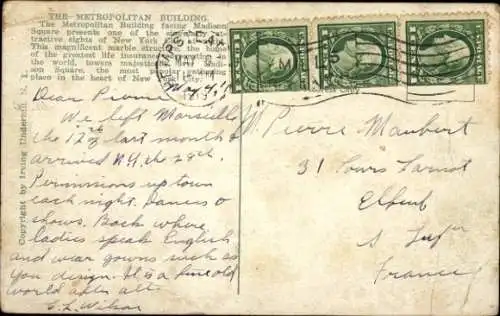 THE METROPOLITAN BUILDING.
The Metropolitan Building facing Madison
Square presents one of the
tractive sights of New York
This magnificent marble structure, the home
of the greatest life insurance
in the world, towers
son Square, the most popular gathering
place in the heart of New York City.
Copyright by Irving Underhill, N. Y.
Dear Pierre
We left Marseille
the 17th last month &
arrived N.Y. the 28th.
Permissions uptown
each night. Dances &
shows. Back where
ladies speak English
and wear gowns such as
you design. It is a fine old
world after all.
Wilson
M. Pierre Maubert
31 Cours Carnot
Elbeuf
s
France